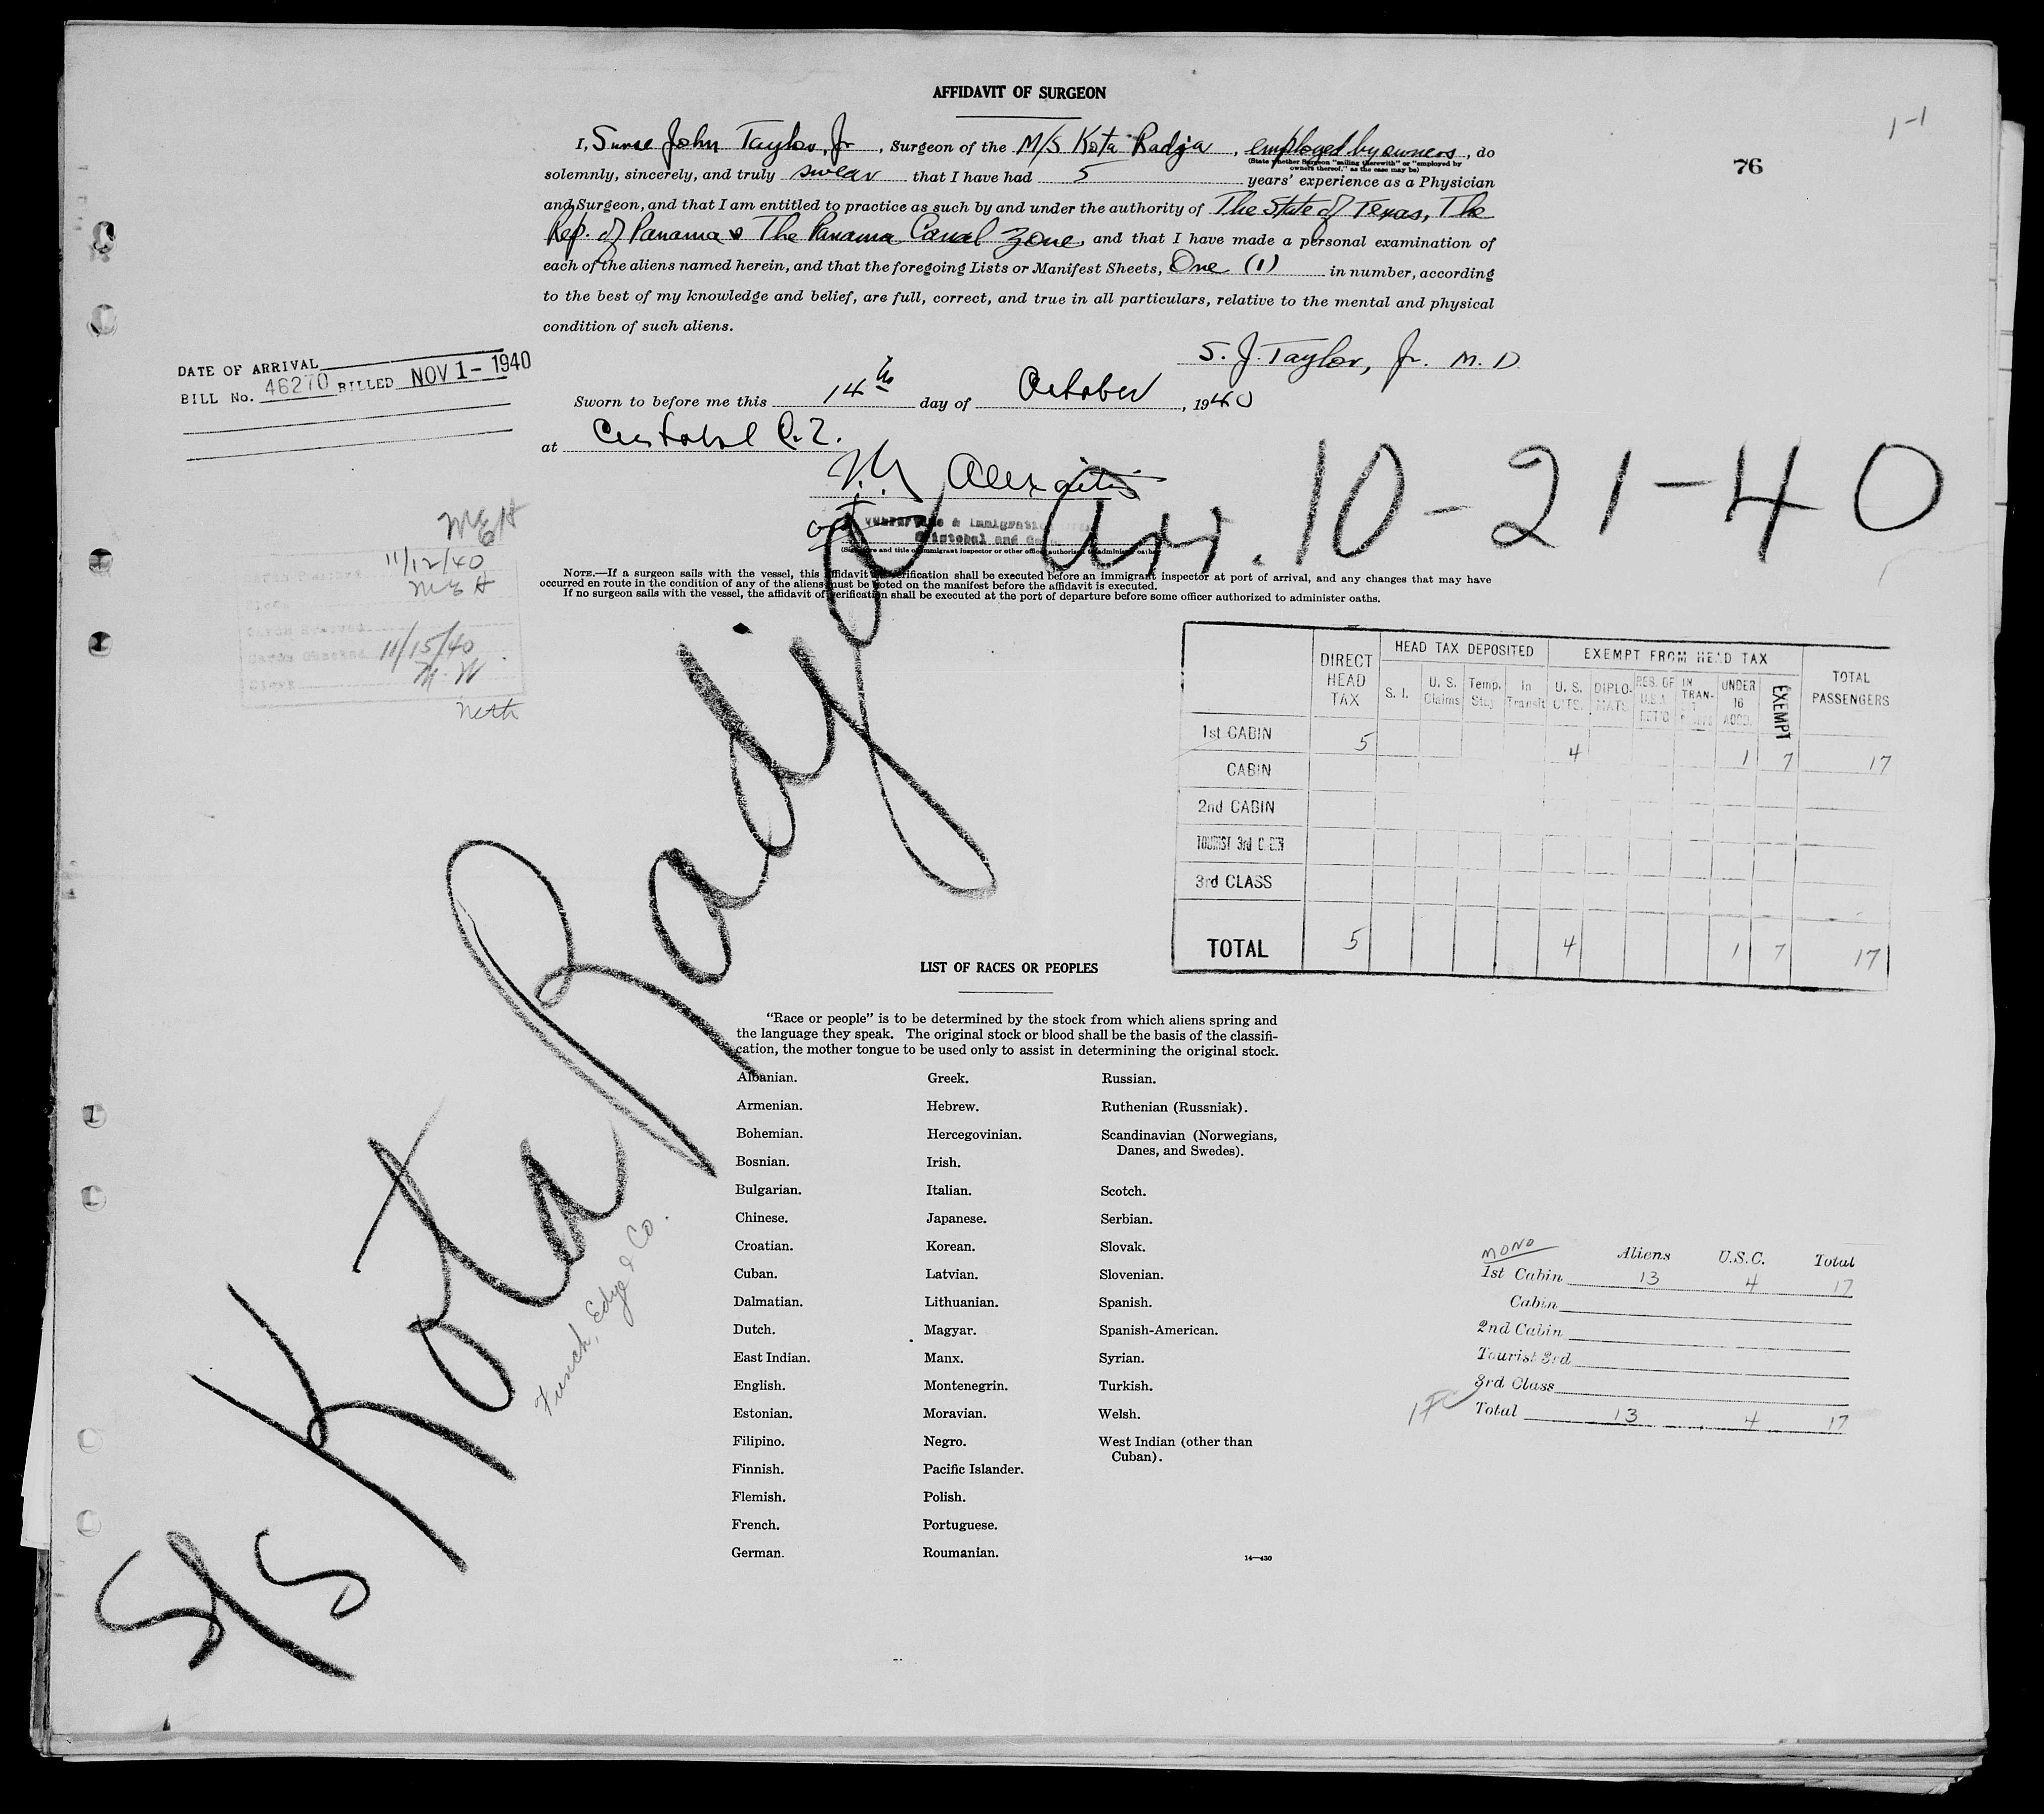 AFFIDAVIT OF SURGEON
1-1
76
I, John Taylor, Jr, Surgeon of the M/S Kota Radja, employed by owners, do
(State whether Surgeon "sailing therewith" or "employed by
owners thereof," as the case may be)
solemnly, sincerely, and truly swear that I have had 5 years' experience as a Physician
and Surgeon, and that I am entitled to practice as such by and under the authority of The State of Texas, The
Rep. of Panama & The Panama Canal Zone, and that I have made a personal examination of
each of the aliens named herein, and that the foregoing Lists or Manifest Sheets, One (1) in number, according
to the best of my knowledge and belief, are full, correct, and true in all particulars, relative to the mental and physical
condition of such aliens.
S. J. Taylor, Jr. M. D.
DATE OF ARRIVAL
BILL No. 46270 BILLED NOV 1-1940
Sworn to before me this 14th day of October, 1940
at Cristobal C.Z.
Arr. 10-21-40
(Signature and title of immigrant inspector or other officer authorized to administer oaths)
NOTE.—If a surgeon sails with the vessel, this affidavit of verification shall be executed before an immigrant inspector at port of arrival, and any changes that may have
occurred en route in the condition of any of the aliens must be noted on the manifest before the affidavit is executed.
If no surgeon sails with the vessel, the affidavit of verification shall be executed at the port of departure before some officer authorized to administer oaths.
MEH
11/12/40
MEH
11/15/40
M.W.
Neth
S/S Kota Radja
Funch, Edye & Co.
DIRECT HEAD TAX
HEAD TAX DEPOSITED
EXEMPT FROM HEAD TAX
TOTAL PASSENGERS
S. I. U. S. Claims Temp. Stay In Transit U. S. CITS. DIPLOMATS RES. OF U.S.A. RET'D IN TRAN- UNDER 16 ACCD. EXEMPT
1st CABIN 5 4 1 7 17
CABIN
2nd CABIN
TOURIST 3rd CABIN
3rd CLASS
TOTAL 5 4 1 7 17
LIST OF RACES OR PEOPLES
"Race or people" is to be determined by the stock from which aliens spring and
the language they speak. The original stock or blood shall be the basis of the classifi-
cation, the mother tongue to be used only to assist in determining the original stock.
Albanian. Greek. Russian.
Armenian. Hebrew. Ruthenian (Russniak).
Bohemian. Hercegovinian. Scandinavian (Norwegians,
Danes, and Swedes).
Bosnian. Irish.
Bulgarian. Italian. Scotch.
Chinese. Japanese. Serbian.
Croatian. Korean. Slovak.
Cuban. Latvian. Slovenian.
Dalmatian. Lithuanian. Spanish.
Dutch. Magyar. Spanish-American.
East Indian. Manx. Syrian.
English. Montenegrin. Turkish.
Estonian. Moravian. Welsh.
Filipino. Negro. West Indian (other than
Cuban).
Finnish. Pacific Islander.
Flemish. Polish.
French. Portuguese.
German. Roumanian.
14—430
MONO Aliens U.S.C. Total
1st Cabin 13 4 17
Cabin
2nd Cabin
Tourist 3rd
3rd Class
Total 13 4 17